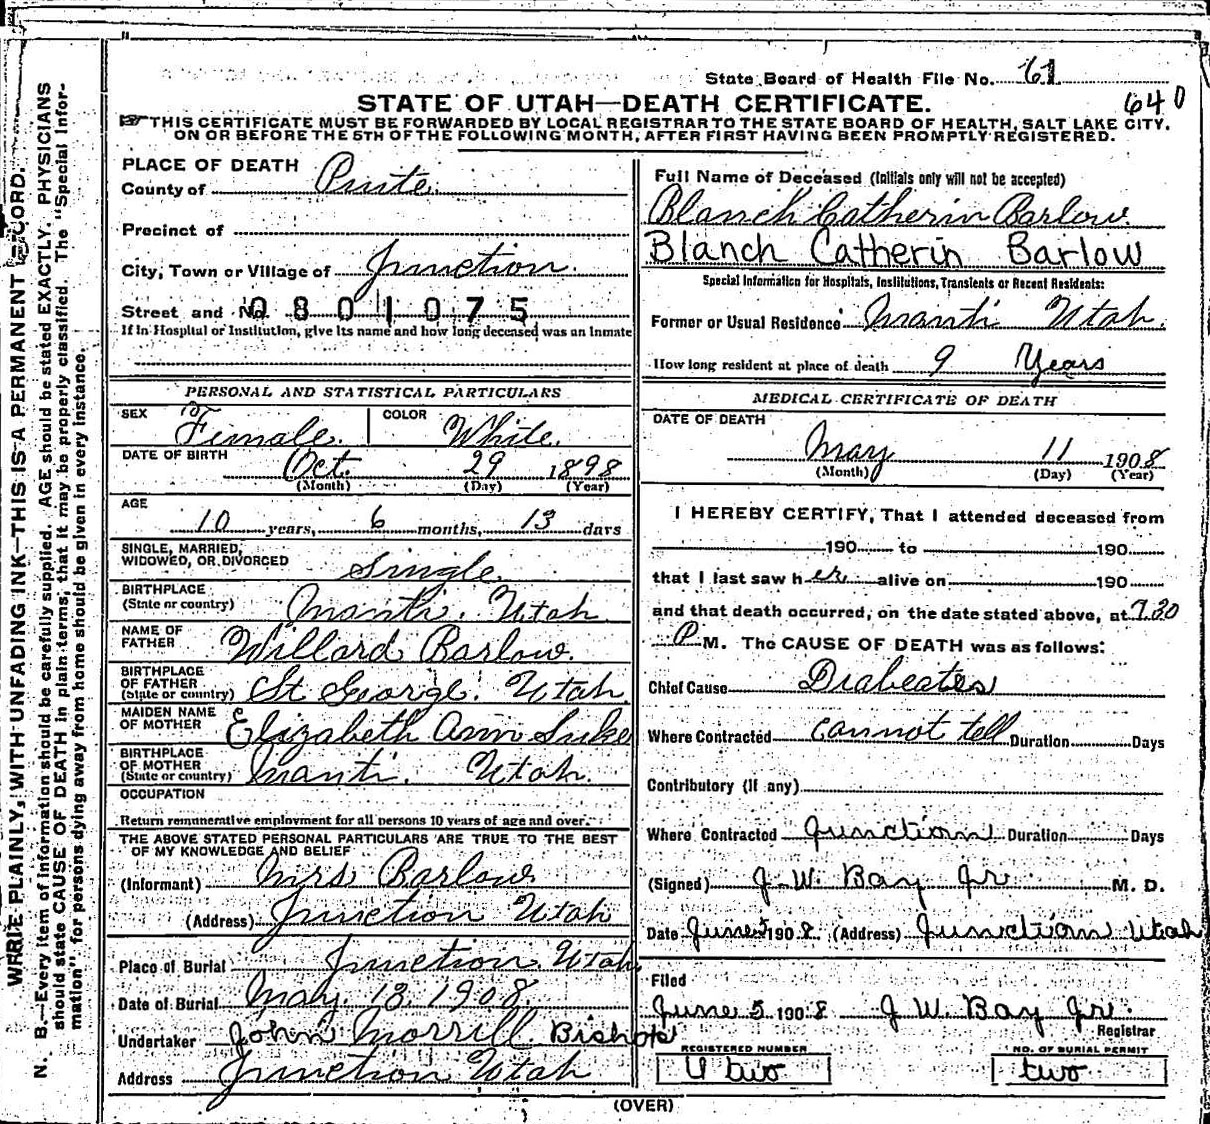 State Board of Health File No. 61
640
STATE OF UTAH—DEATH CERTIFICATE.
THIS CERTIFICATE MUST BE FORWARDED BY LOCAL REGISTRAR TO THE STATE BOARD OF HEALTH, SALT LAKE CITY,
ON OR BEFORE THE 5TH OF THE FOLLOWING MONTH, AFTER FIRST HAVING BEEN PROMPTLY REGISTERED.
WRITE PLAINLY, WITH UNFADING INK—THIS IS A PERMANENT RECORD.
N. B.—Every item of information should be carefully supplied. AGE should be stated EXACTLY. PHYSICIANS
should state CAUSE OF DEATH in plain terms, that it may be properly classified. The "Special Infor-
mation" for persons dying away from home should be given in every instance.
PLACE OF DEATH
County of Piute
Precinct of
City, Town or Village of Junction.
Street and No. 0801075
If in Hospital or Institution, give its name and how long deceased was an inmate
PERSONAL AND STATISTICAL PARTICULARS
SEX Female. COLOR White.
DATE OF BIRTH Oct. 29 1898
(Month) (Day) (Year)
AGE
10 years, 6 months, 13 days
SINGLE, MARRIED,
WIDOWED, OR DIVORCED Single.
BIRTHPLACE
(State or country) Manti. Utah.
NAME OF
FATHER Willard Barlow.
BIRTHPLACE
OF FATHER
(State or country) St George. Utah.
MAIDEN NAME
OF MOTHER Elizabeth Ann Luke
BIRTHPLACE
OF MOTHER
(State or country) Manti. Utah.
OCCUPATION
Return remunerative employment for all persons 10 years of age and over.
THE ABOVE STATED PERSONAL PARTICULARS ARE TRUE TO THE BEST
OF MY KNOWLEDGE AND BELIEF
(Informant) Mrs Barlow.
(Address) Junction Utah
Place of Burial Junction. Utah.
Date of Burial May. 13. 1908.
Undertaker John Morrill Bishop
Address Junction Utah
Full Name of Deceased (Initials only will not be accepted)
Blanch Catherin Barlow.
Blanch Catherin Barlow
Special Information for Hospitals, Institutions, Transients or Recent Residents:
Former or Usual Residence Manti Utah.
How long resident at place of death 9 Years
MEDICAL CERTIFICATE OF DEATH
DATE OF DEATH
May 11 1908
(Month) (Day) (Year)
I HEREBY CERTIFY, That I attended deceased from
190 to 190
that I last saw her alive on 190
and that death occurred, on the date stated above, at 7.30
P M. The CAUSE OF DEATH was as follows:
Chief Cause Diabeates
Where Contracted cannot tell Duration Days
Contributory (if any)
Where Contracted Junction Duration Days
(Signed) J. W. Bay Jr. M. D.
Date June 5 1908. (Address) Junction Utah
Filed
June 5 1908 J W. Bay Jr.
Registrar
REGISTERED NUMBER
two
NO. OF BURIAL PERMIT
two
(OVER)